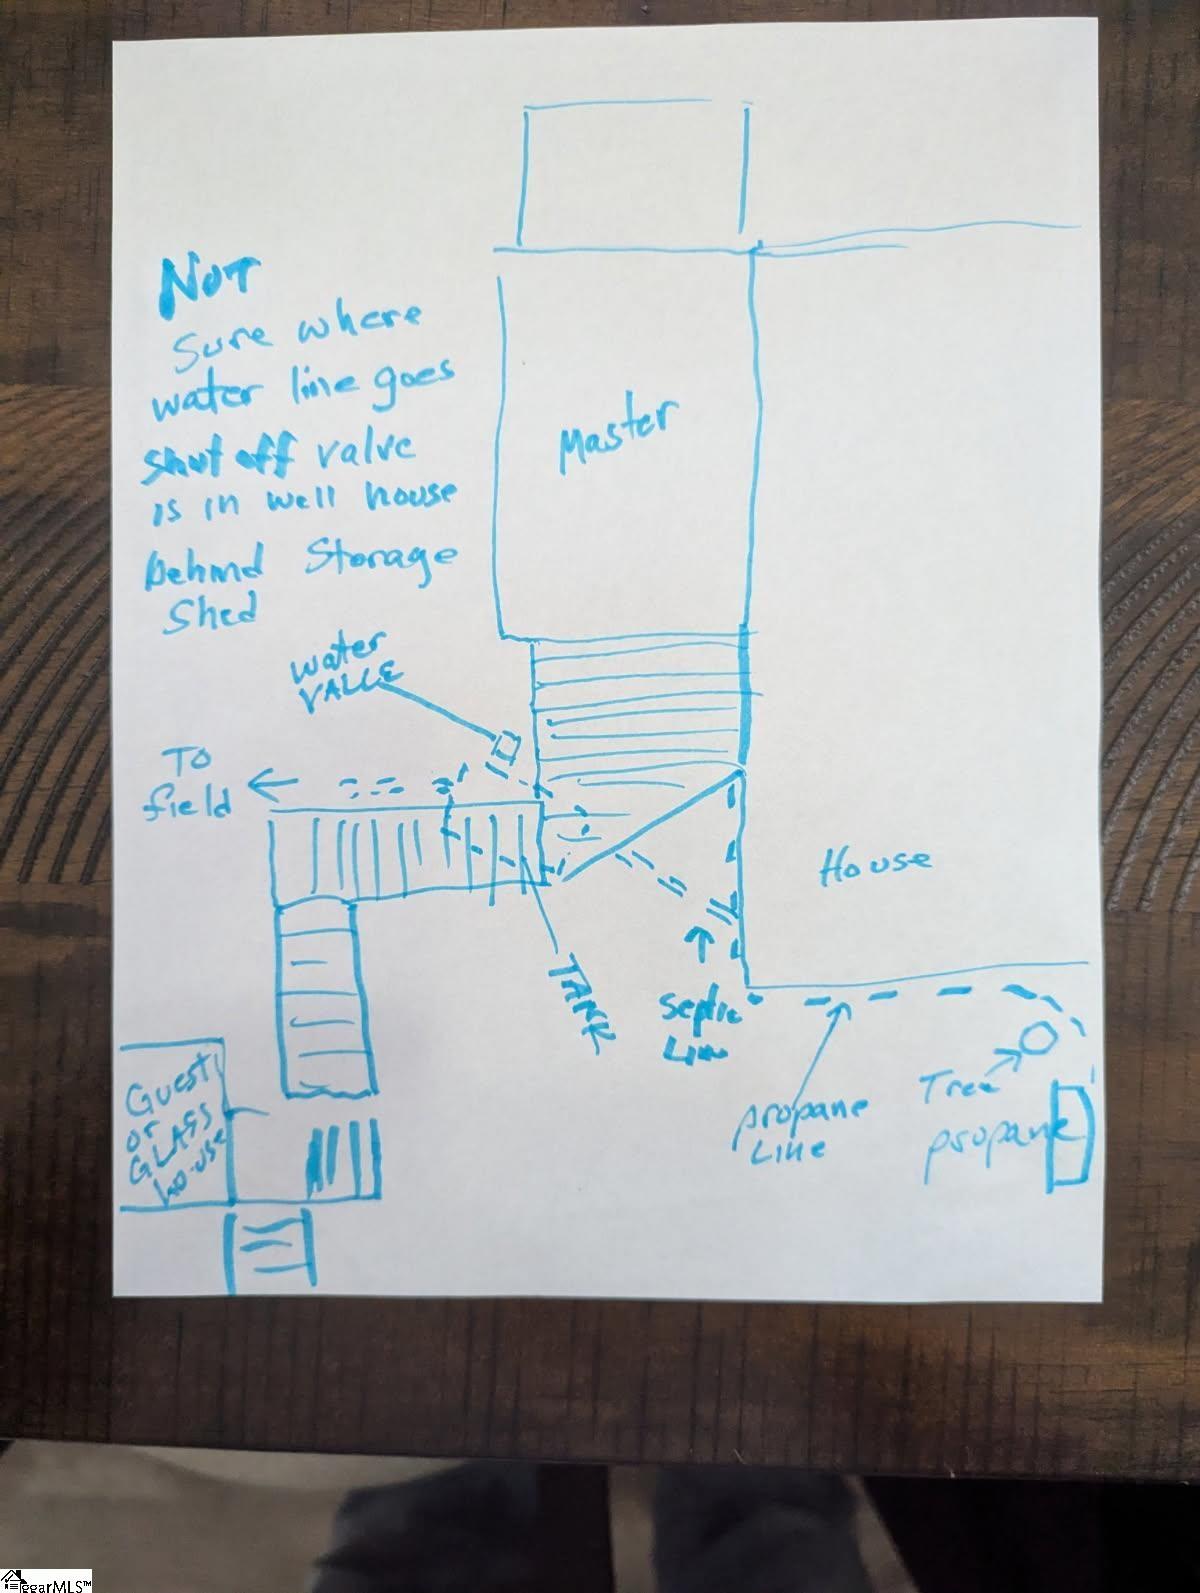 NOT
Sure where
water line goes
shut off valve
is in well house
behind Storage
Shed
water
VALLE
TO
field
Master
House
TANK
Septic
Lin
propane
Line
Tree
propane
Guest
or
GLASS
house
ggarMLS™